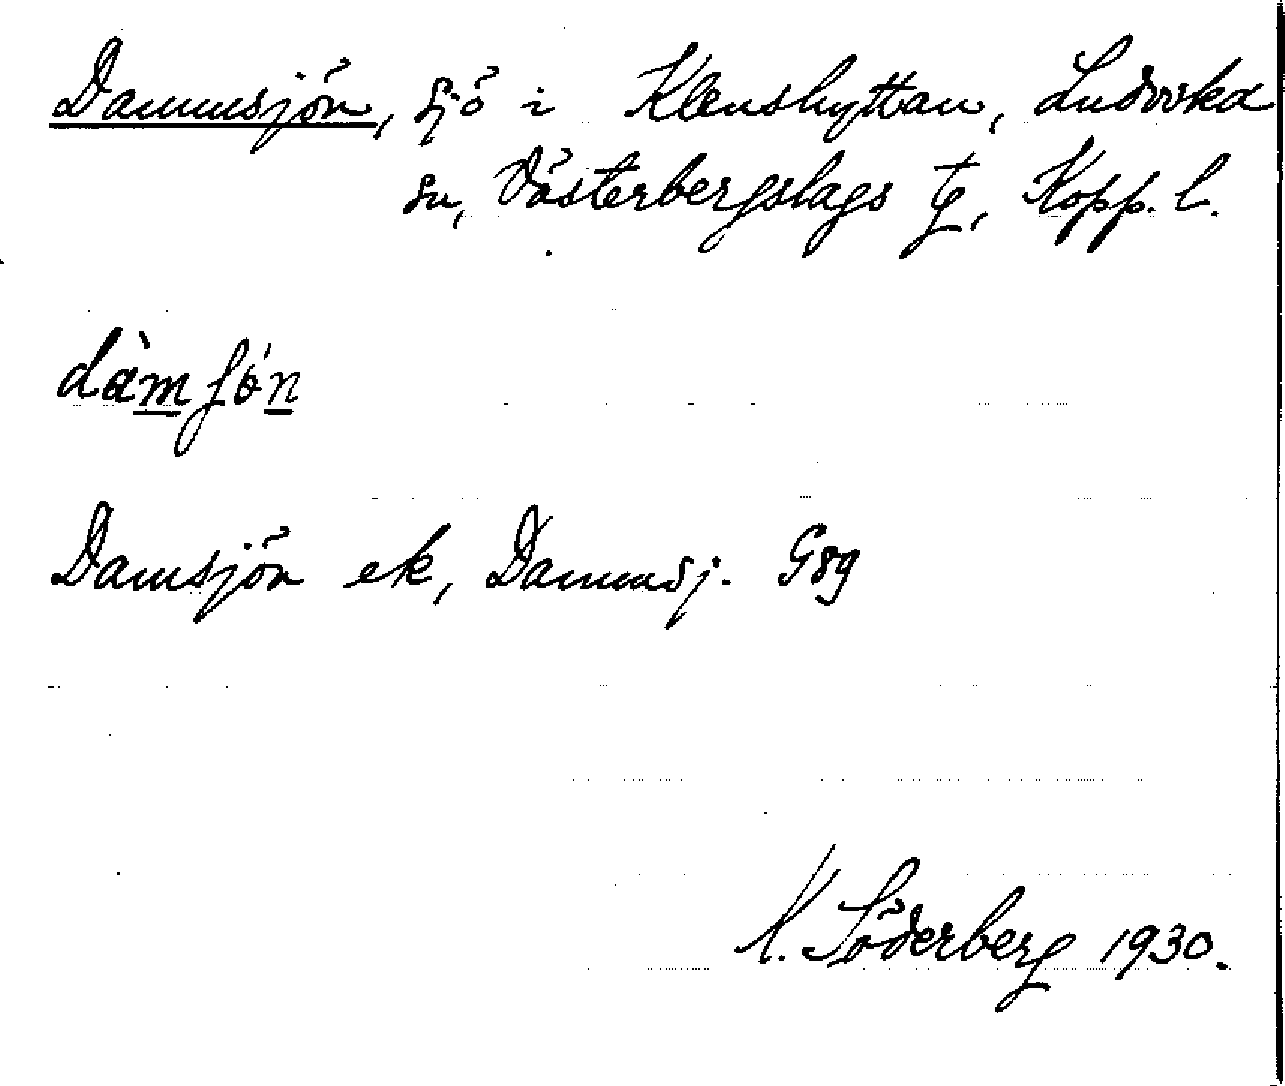 Dammsjön, sjö i Klenshyttan, Ludvika
sn, Västerbergslags tg, Kopp. l.
dàmʃón
Damsjön ek, Dammsj. G89
K. Söderberg 1930.